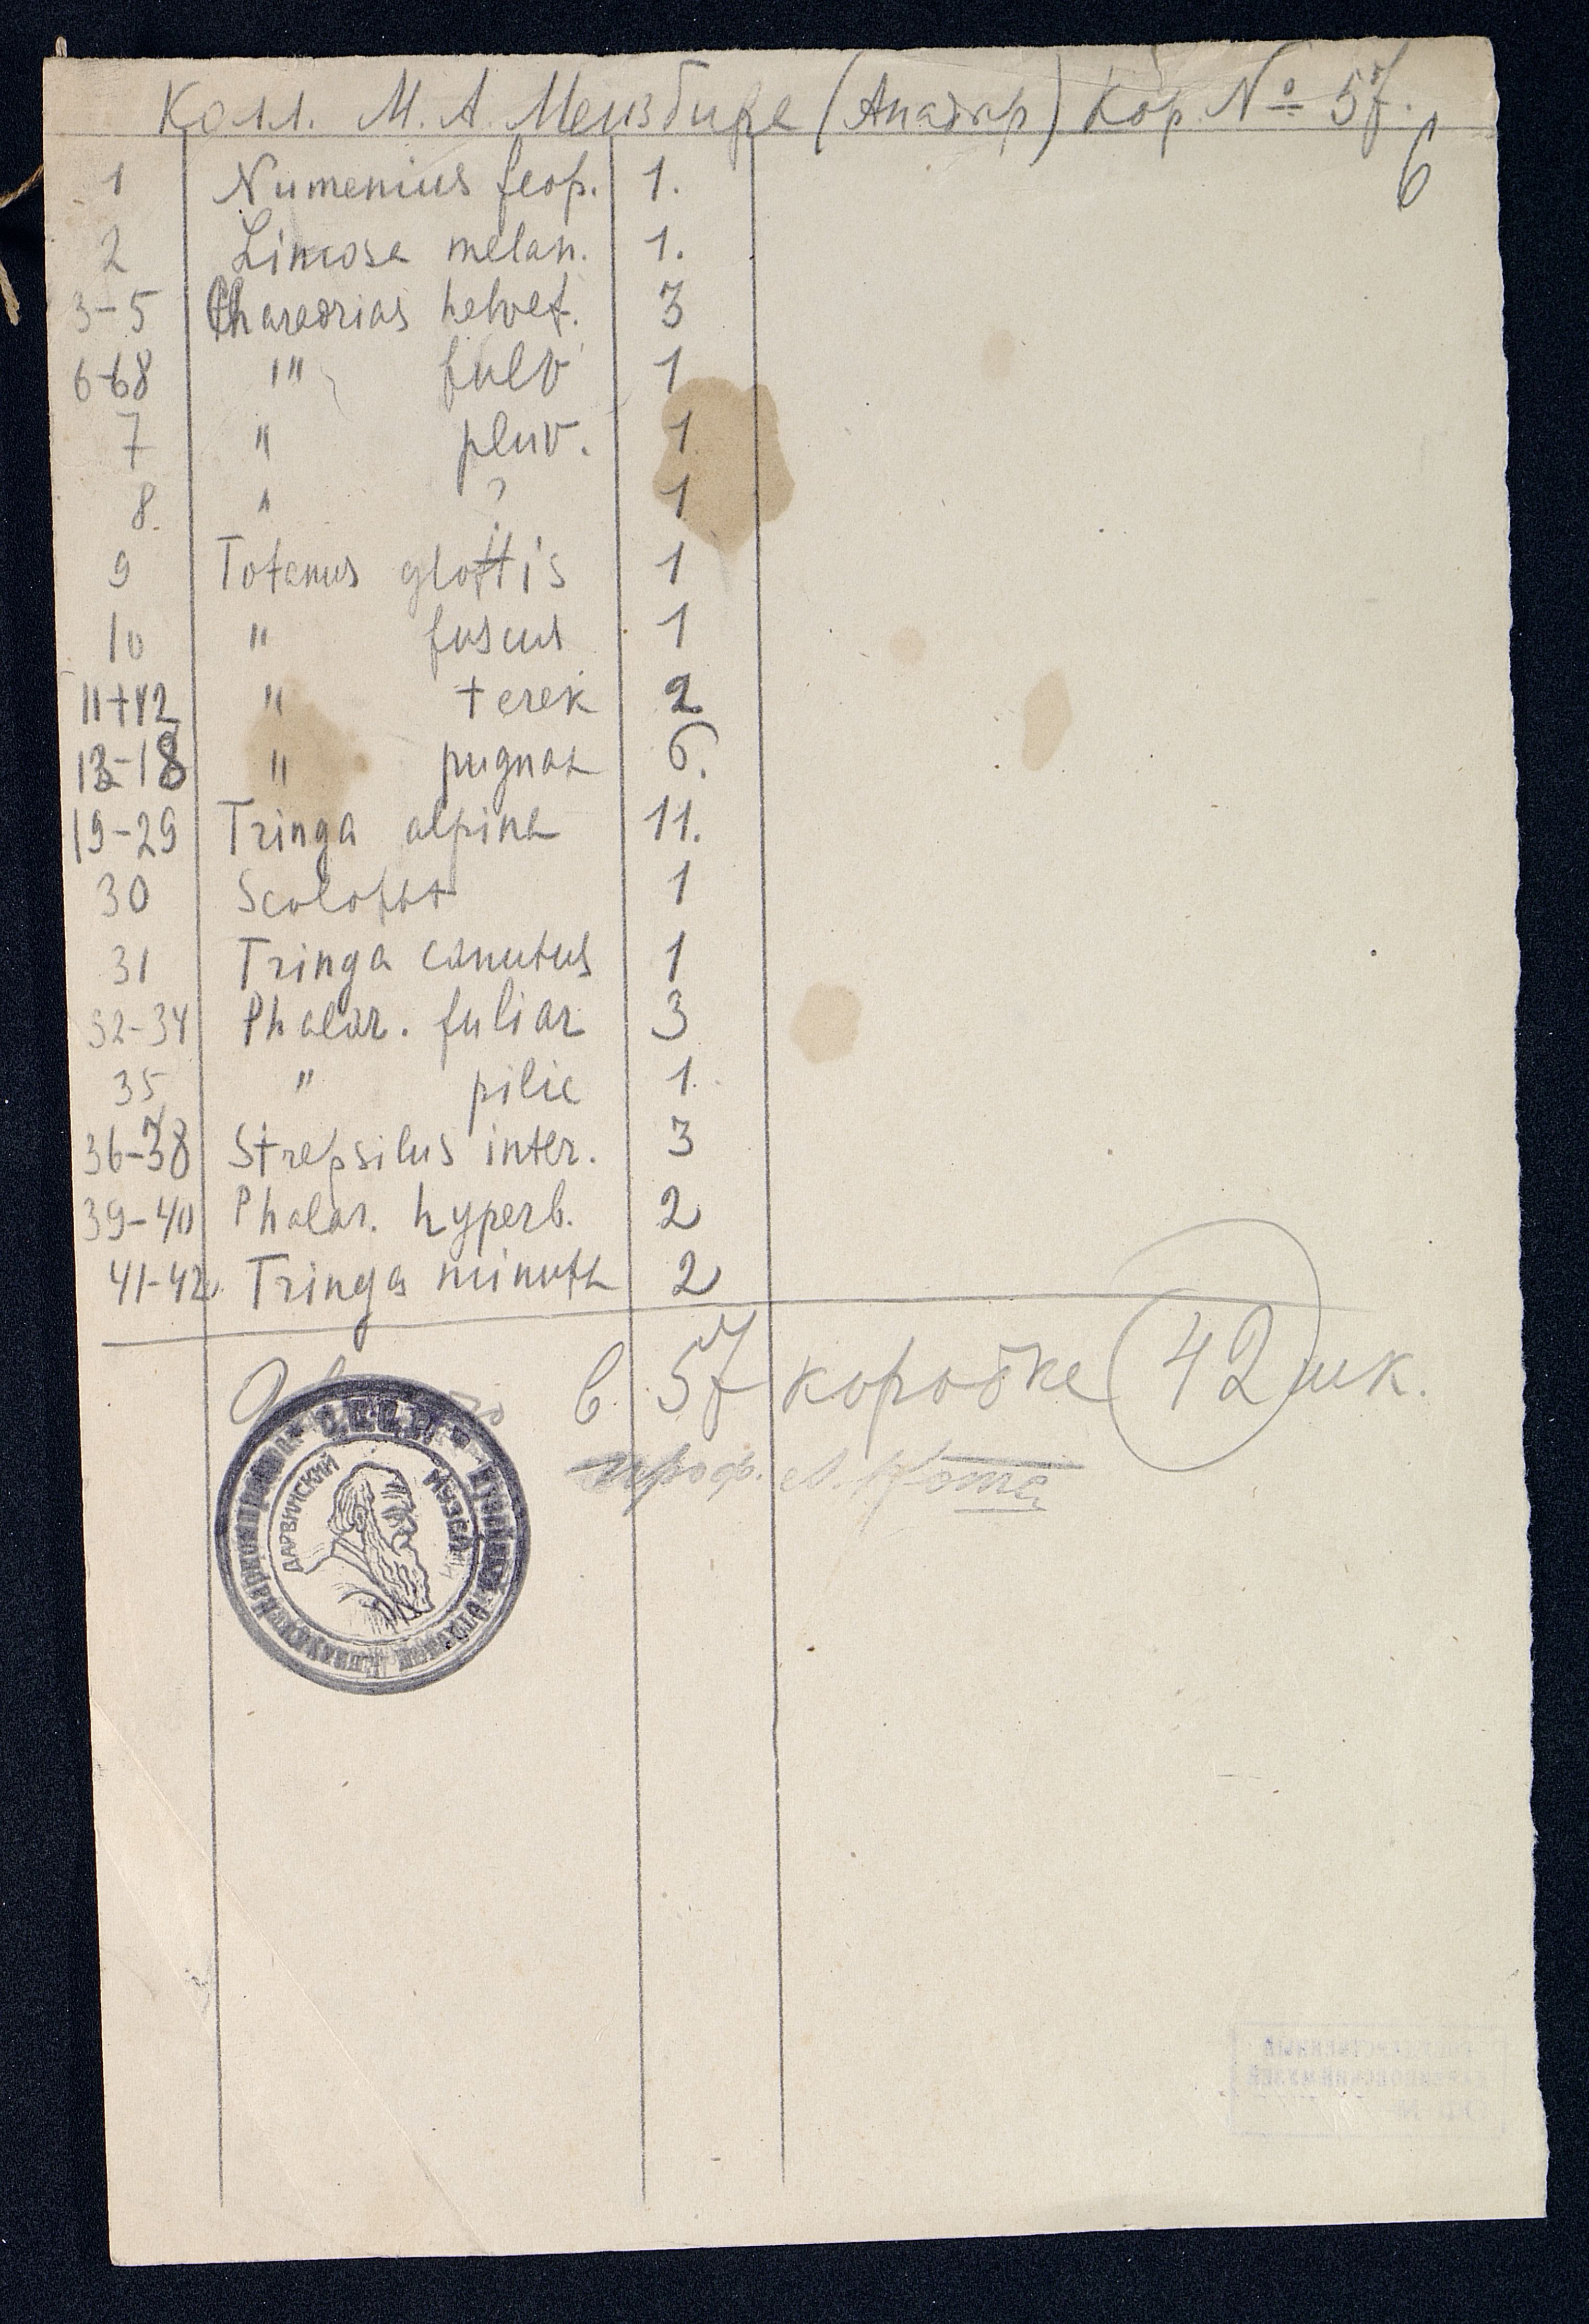 Колл. М. А. Мензбира (Анадыр) Кор. № 57.
6
1 Numenius feop. 1.
2 Limosa melan. 1.
3-5 Charadrias helvet. 3
6-68 " fulv 1
7 " pluv. 1
8. " ? 1
9 Totanus glottis 1
10 " fuscus 1
11+12 " terek 2
13-18 " pugnax 6.
19-29 Tringa alpina 11.
30 1
31 Tringa canutus 1
32-34 Phalar. fuliar 3
35 " pilie 1.
36-38 Strepsilus inter. 3
39-40 Phalar. hyperb. 2
41-42 Tringa minuta 2
в 57 коробке 42 шк.
проф.
С.С.С.Р.
ДАРВИНСКИЙ МУЗЕЙ